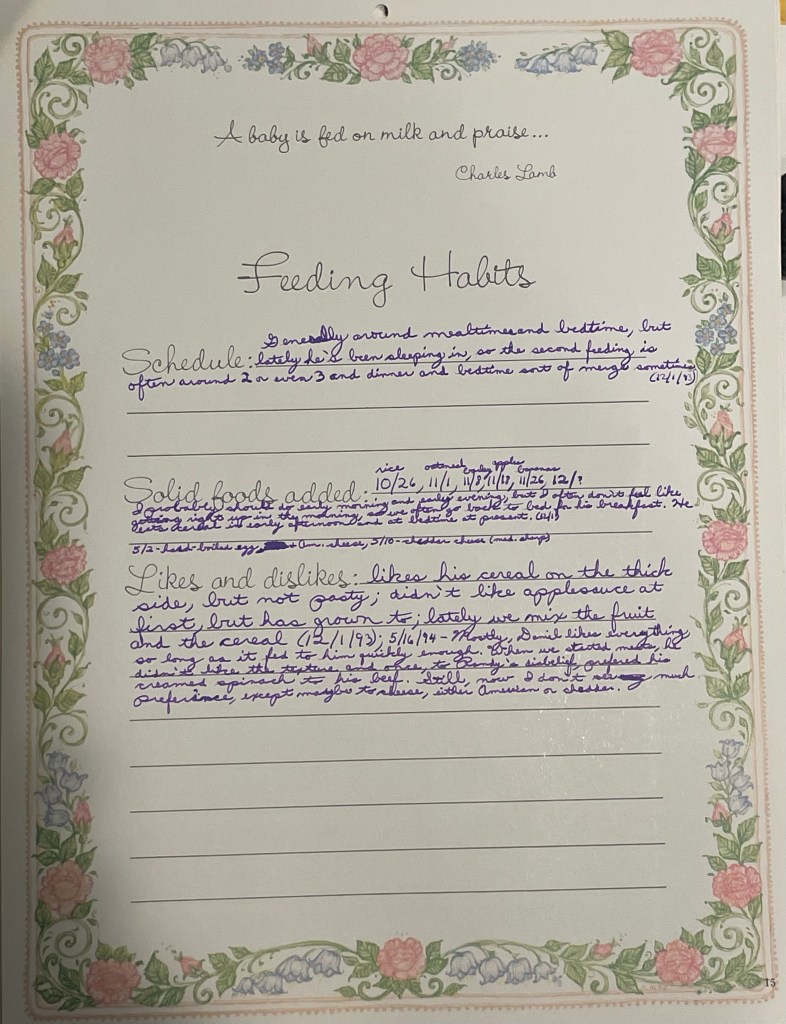 A baby is fed on milk and praise...
Charles Lamb
Feeding Habits
Generally around mealtimes and bedtime, but
Schedule: lately he's been sleeping in, so the second feeding is
often around 2 or even 3 and dinner and bedtime sort of merge sometimes
(12/1/93)
rice oatmeal barley apples bananas
Solid foods added: 10/26, 11/1, 11/8, 11/18, 11/26, 12/?
I probably should do early morning and early evening, but I often don't feel like
getting right up in the morning, so we often go back to bed for his breakfast. He
eats cereal in early afternoon and at bedtime at present. (12/1)
5/2 - hard-boiled egg, Am. cheese, 5/10 - cheddar cheese (med. sharp)
Likes and dislikes: likes his cereal on the thick
side, but not pasty; didn't like applesauce at
first, but has grown to; lately we mix the fruit
and the cereal (12/1/93); 5/16/94 - Mostly, likes everything
so long as it fed to him quickly enough. When we started meats, he
didn't like the texture and once, to Randy's disbelief, prefered his
creamed spinach to his beef. Still, now I don't see much
preference, except maybe to cheese, either American or cheddar.
15